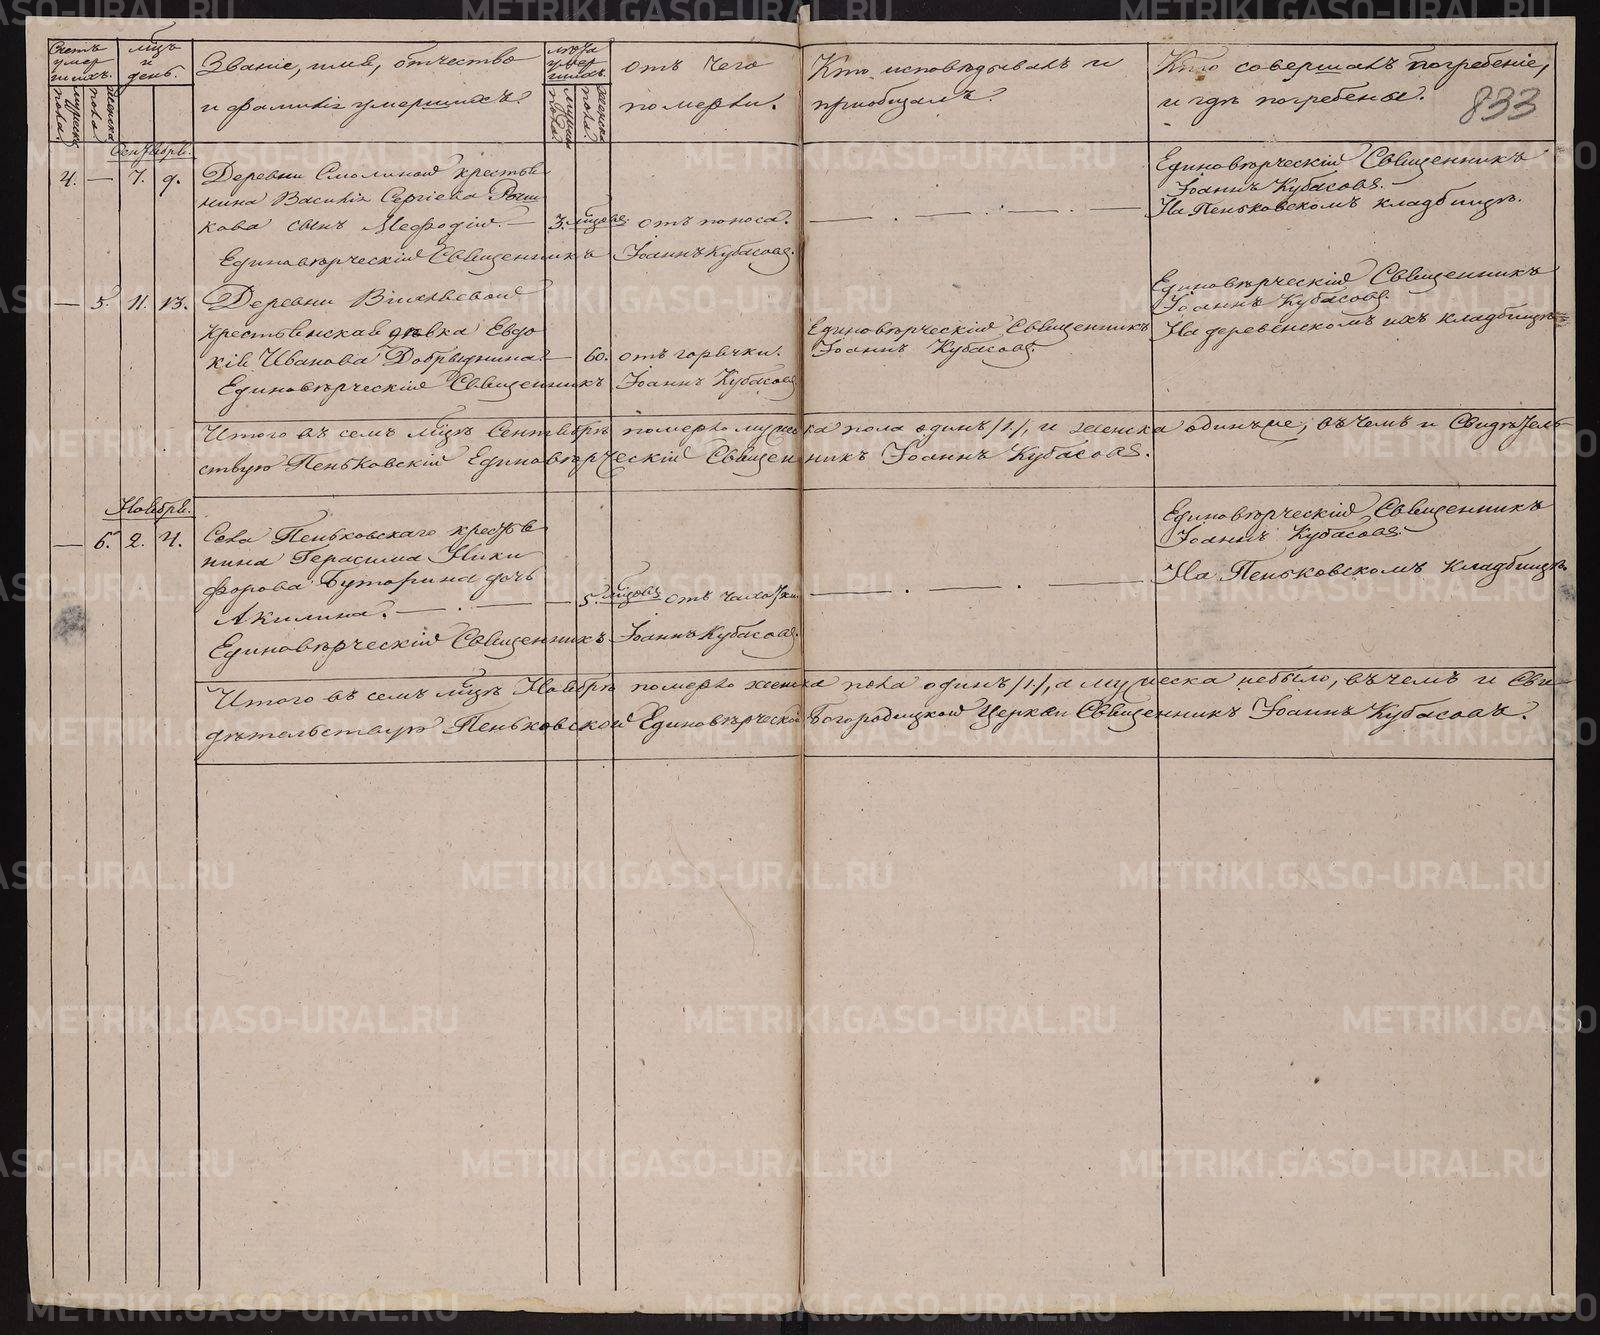 Счетъ умер шихъ.
мужеска пола.
женска пола
мѣць и день.
Званіе, имя, отчество
и фамилія умершихъ.
лѣта умер шихъ.
мужеск пола
женска пола.
отъ чего
померли.
Кто исповѣдывалъ и
пріобщалъ.
Кто совершалъ погребеніе,
и гдѣ погребены.
833
Сентября.
4. — 7. 9.
Деревни Смолиной крестья
нина Василія Сергіева
кова сынъ Мефодій. — 3. мѣцовъ отъ поноса.
Единовѣрческій Священникъ
Іоаннъ Кубасовъ.
На Пеньковскомъ кладбищѣ.
Единовѣрческій Священникъ Іоаннъ Кубасовъ.
— 5. 11. 13.
Деревни
крестьянская дѣвка Евдо
кія Иванова Добрынина — 60. отъ горячки.
Единовѣрческій Священникъ
Іоаннъ Кубасовъ.
Единовѣрческій Священникъ
Іоаннъ Кубасовъ.
На деревенскомъ ихъ кладбищѣ
Единовѣрческій Священникъ Іоаннъ Кубасовъ
Итого въ семъ мѣцѣ Сентябрѣ померло мужеска пола одинъ /1/, и женска одинъ же, въ чемъ и Свидѣтель
ствую Пеньковскій Единовѣрческій Священникъ Іоаннъ Кубасовъ.
Ноября.
— 6. 2. 4.
Села Пеньковскаго крестья
нина Герасима Ники
форова Буторина дочь
Акилина. — 5. мѣцовъ отъ чахотки
Единовѣрческій Священникъ
Іоаннъ Кубасовъ.
На Пеньковскомъ кладбищѣ.
Единовѣрческій Священникъ Іоаннъ Кубасовъ.
Итого въ семъ мѣцѣ Ноябрѣ померло женска пола одинъ /1/, а мужеска небыло, въ чемъ и Сви
дѣтельствую Пеньковской Единовѣрческой Богородицкой Церкви Священникъ Іоаннъ Кубасовъ.
METRIKI.GASO-URAL.RU